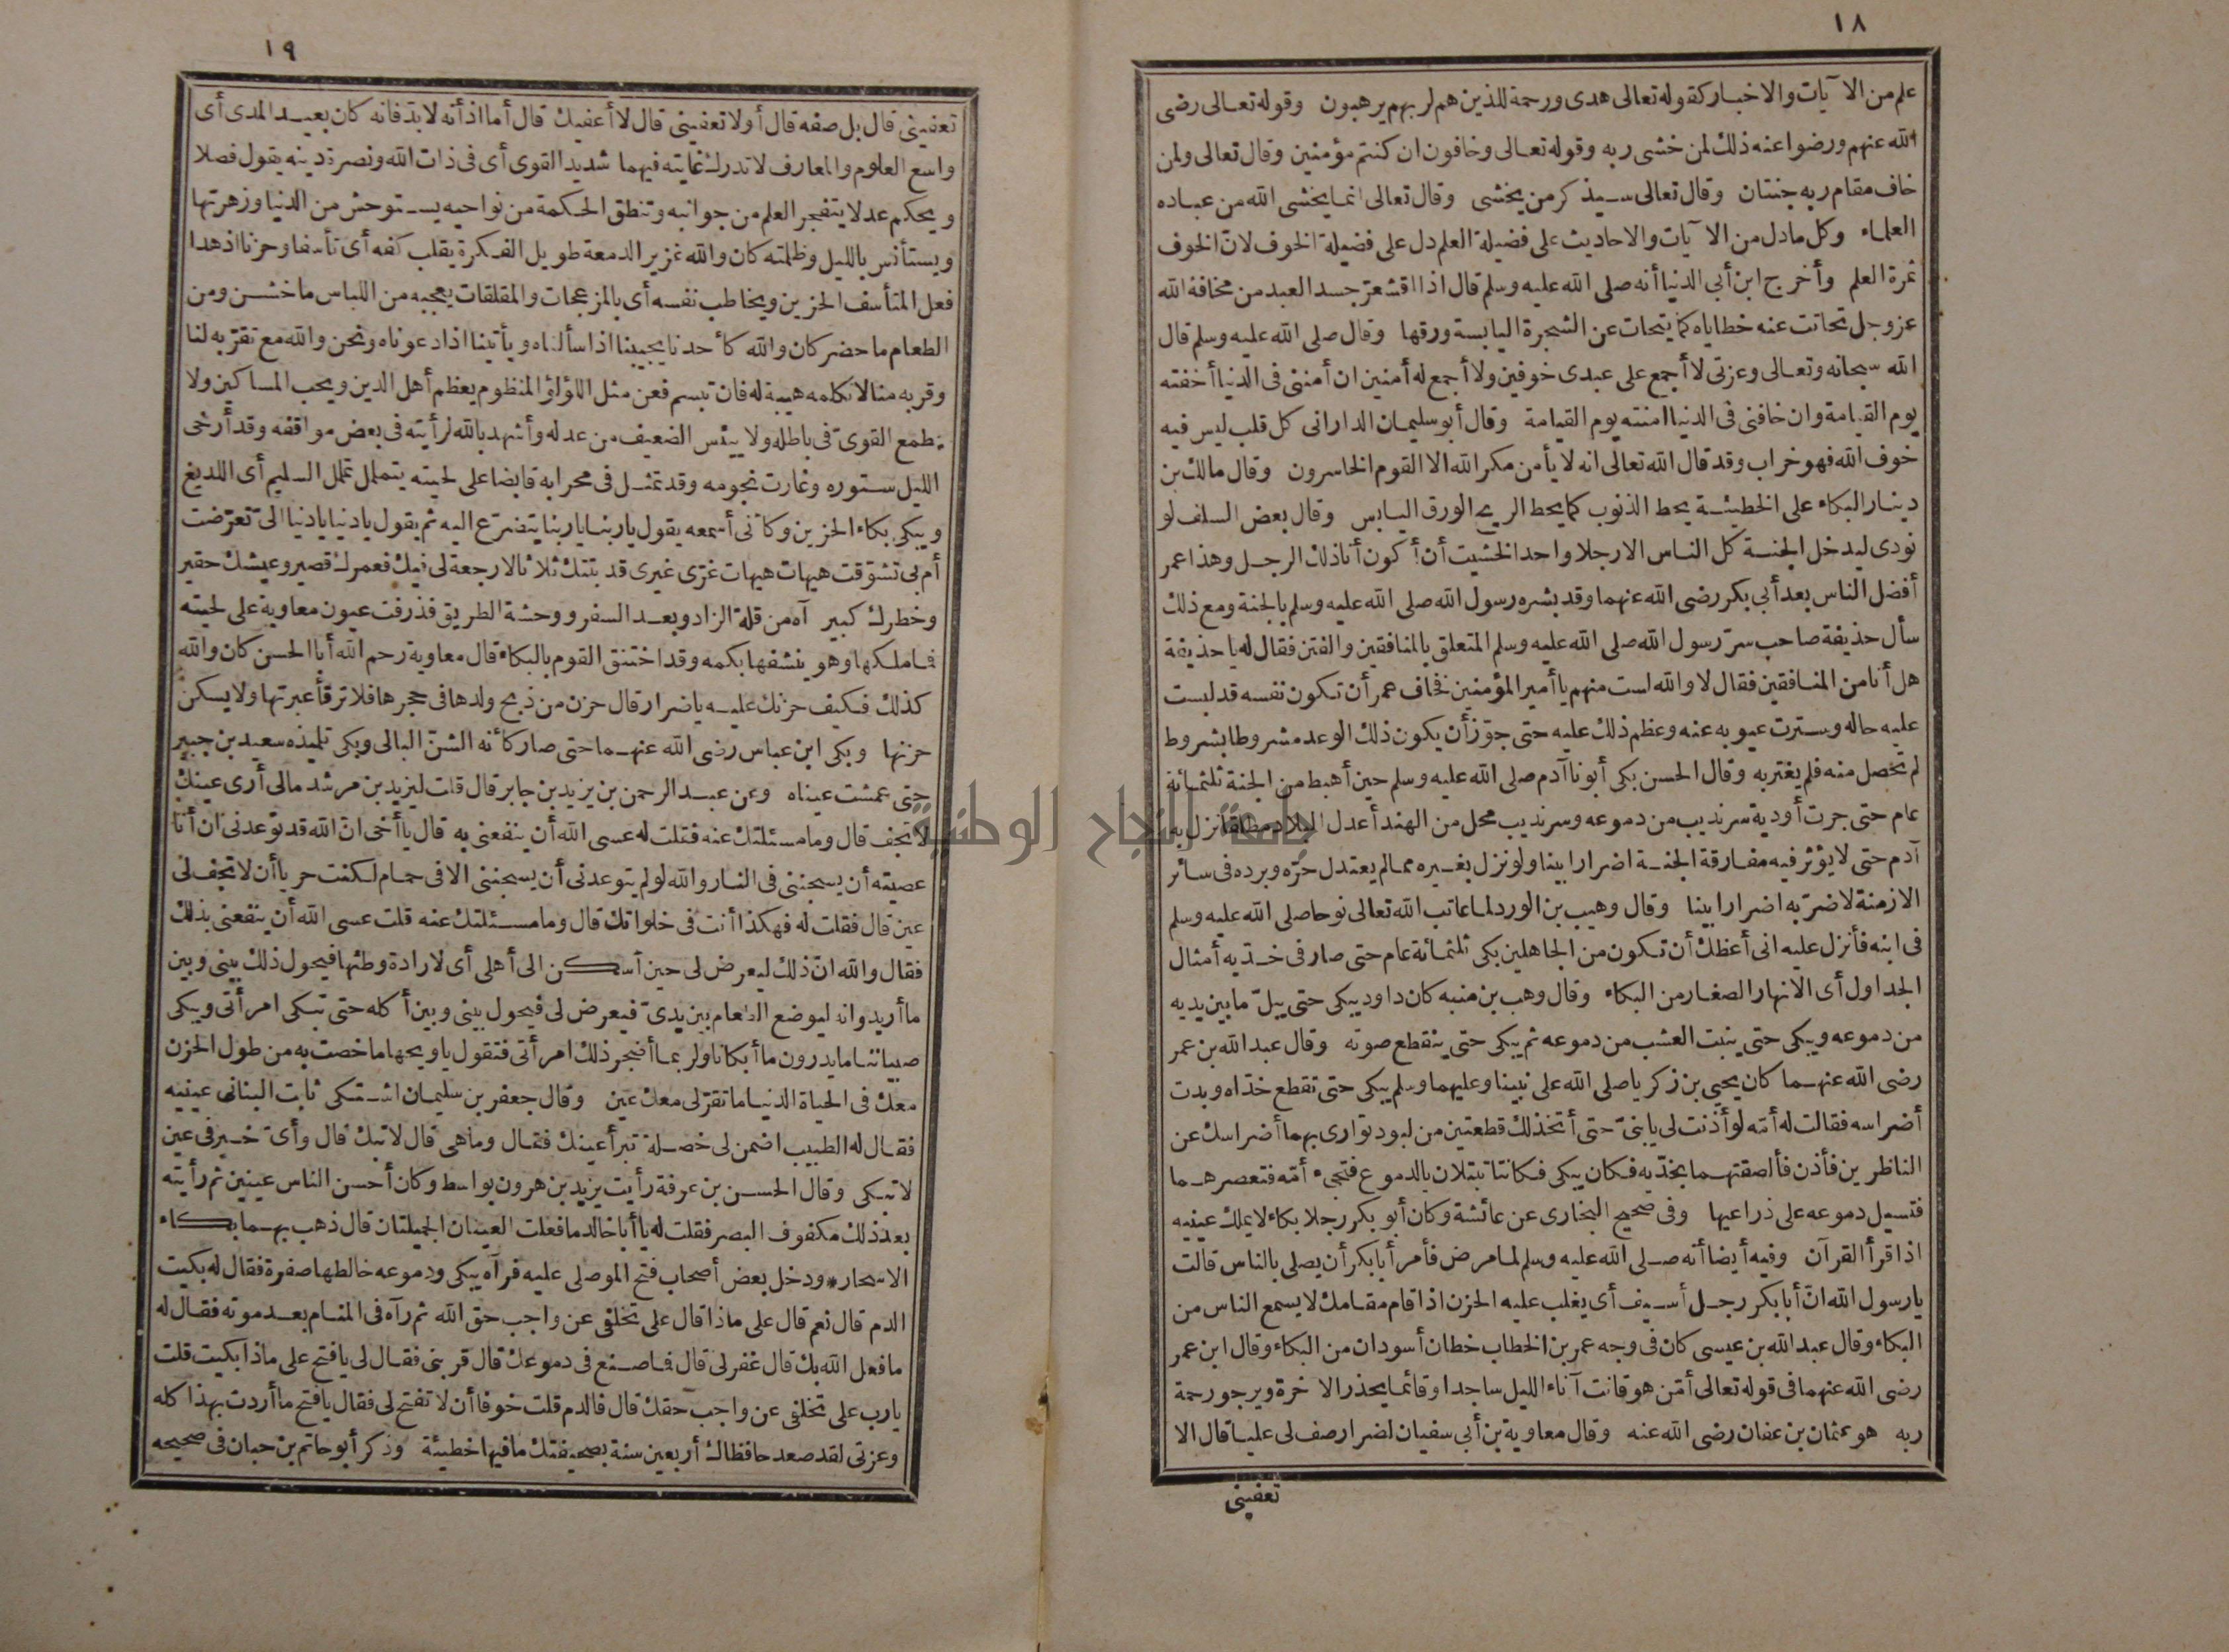 ١٨
علم من الآيات والاخبار كقوله تعالى هدى ورحمة للذين هم لربهم يرهبون وقوله تعالى رضى
الله عنهم ورضوا عنه ذلك لمن خشى ربه وقوله تعالى وخافون ان كنتم مؤمنين وقال تعالى ولمن
خاف مقام ربه جنتان وقال تعالى سيذكر من يخشى وقال تعالى انما يخشى الله من عباده
العلماء وكل مادل من الآيات والاحاديث على فضيلة العلم دل على فضيلة الخوف لانّ الخوف
ثمرة العلم وأخرج ابن أبى الدنيا أنه صلى الله عليه وسلم قال اذا اقشعرّ جسد العبد من مخافة الله
عزوجل تحاتت عنه خطاياه كما يتحات عن الشجرة اليابسة ورقها وقال صلى الله عليه وسلم قال
الله سبحانه وتعالى وعزتى لا أجمع على عبدى خوفين ولا أجمع له أمنين ان أمننى فى الدنيا أخفته
يوم القيامة وان خافنى فى الدنيا امنته يوم القيامة وقال أبو سليمان الدارانى كل قلب ليس فيه
خوف الله فهو خراب وقد قال الله تعالى انه لا يأمن مكر الله الا القوم الخاسرون وقال مالك بن
دينار البكاء على الخطيئة يحط الذنوب كما يحط الريح الورق اليابس وقال بعض السلف لو
نودى ليدخل الجنة كل الناس الا رجلا واحدا لخشيت أن أكون أنا ذلك الرجل وهذا عمر
أفضل الناس بعد أبى بكر رضى الله عنهما وقد بشره رسول الله صلى الله عليه وسلم بالجنة ومع ذلك
سأل حذيفة صاحب سرّ رسول الله صلى الله عليه وسلم المتعلق بالمنافقين والفتن فقال له يا حذيفة
هل أنا من المنافقين فقال لا والله لست منهم يا أمير المؤمنين فخاف عمر أن تكون نفسه قد لبست
عليه حاله وسترت عيوبه عنه وعظم ذلك عليه حتى جوّز أن يكون ذلك الوعد مشروطا بشروط
لم تحصل منه فلم يغتر به وقال الحسن بكى أبونا آدم صلى الله عليه وسلم حين أهبط من الجنة ثلثمائة
عام حتى جرت أودية سرنديب من دموعه وسرنديب محل من الهند أعدل البلاد مطلقا نزل به
آدم حتى لا يؤثر فيه مفارقة الجنة اضرارا بينا ولو نزل بغيره مما لم يعتدل حرّه وبرده فى سائر
الازمنة لاضرّ به اضرارا بينا وقال وهيب بن الورد لما عاتب الله تعالى نوحا صلى الله عليه وسلم
فى ابنه فأنزل عليه انى أعظك أن تكون من الجاهلين بكى ثلثمائة عام حتى صار فى خديه أمثال
الجداول أى الانهار الصغار من البكاء وقال وهب بن منبه كان داود يبكى حتى يبلّ ما بين يديه
من دموعه ويبكى حتى ينبت العشب من دموعه ثم يبكى حتى ينقطع صوته وقال عبد الله بن عمر
رضى الله عنهما كان يحيى بن زكريا صلى الله على نبينا وعليهما وسلم يبكى حتى تقطع خدّاه وبدت
أضراسه فقالت له أمّه لو أذنت لى يا بنىّ حتى أتخذ لك قطعتين من لبود توارى بهما أضراسك عن
الناظرين فأذن فألصقتهما بخدّيه فكان يبكى فكانتا تبتلان بالدموع فتجىء أمّه فتعصرهما
فتسيل دموعه على ذراعيها وفى صحيح البخارى عن عائشة وكان أبو بكر رجلا بكاء لا يملك عينيه
اذا قرأ القرآن وفيه أيضا أنه صلى الله عليه وسلم لما مرض فأمر أبا بكر أن يصلى بالناس قالت
يا رسول الله انّ أبا بكر رجل أسيف أى يغلب عليه الحزن اذا قام مقامك لا يسمع الناس من
البكاء وقال عبد الله بن عيسى كان فى وجه عمر بن الخطاب خطان أسودان من البكاء وقال ابن عمر
رضى الله عنهما فى قوله تعالى أمّن هو قانت آناء الليل ساجدا وقائما يحذر الآخرة ويرجو رحمة
ربه هو عثمان بن عفان رضى الله عنه وقال معاوية بن أبى سفيان لضرار صف لى عليا قال الا
تعفينى
١٩
تعفينى قال بل صفه قال أولا تعفينى قال لا أعفيك قال أما اذ أنه لا بدّ فانه كان بعيد المدى أى
واسع العلوم والمعارف لا تدرك غايته فيهما شديد القوى أى فى ذات الله ونصرة دينه يقول فصلا
ويحكم عدلا يتفجر العلم من جوانبه وتنطق الحكمة من نواحيه يستوحش من الدنيا وزهرتها
ويستأنس بالليل وظلمته كان والله غزير الدمعة طويل الفكرة يقلب كفه أى تأسفا وحزنا اذ هذا
فعل المتأسف الحزين ويخاطب نفسه أى بالمزعجات والمقلقات يعجبه من اللباس ما خشن ومن
الطعام ما حضر كان والله كأحدنا يجيبنا اذا سألناه ويأتينا اذا دعوناه ونحن والله مع تقرّبه لنا
وقربه منا لا نكلمه هيبة له فان تبسم فعن مثل اللؤلؤ المنظوم يعظم أهل الدين ويحب المساكين ولا
يطمع القوىّ فى باطله ولا ييئس الضعيف من عدله وأشهد بالله لرأيته فى بعض مواقفه وقد أرخى
الليل ستوره وغارت نجومه وقد تمثل فى محرابه قابضا على لحيته يتململ تململ السليم أى اللديغ
ويبكى بكاء الحزين وكأنى أسمعه يقول يا ربنا يا ربنا يتضرّع اليه ثم يقول يا دنيا يا دنيا الىّ تعرّضت
أم بى تشوّقت هيهات هيهات غرّى غيرى قد بتتك ثلاثا لا رجعة لى فيك فعمرك قصير وعيشك حقير
وخطرك كبير آه من قلة الزاد وبعد السفر ووحشة الطريق فذرفت عيون معاوية على لحيته
فما ملكها وهو ينشفها بكمه وقد اختنق القوم بالبكاء قال معاوية رحم الله أبا الحسن كان والله
كذلك فكيف حزنك عليه يا ضرار قال حزن من ذبح ولدها فى حجرها فلا ترقأ عبرتها ولا يسكن
حزنها وبكى ابن عباس رضى الله عنهما حتى صار كأنه الشنّ البالى وبكى تلميذه سعيد بن جبير
حتى عمشت عيناه وعن عبد الرحمن بن يزيد بن جابر قال قلت ليزيد بن مرشد مالى أرى عينك
لا تجف قال وما مسئلتك عنه فقلت له عسى الله أن ينفعنى به قال يا أخى انّ الله قد توعدنى ان أنا
عصيته أن يسجننى فى النار والله لو لم يتوعدنى أن يسجننى الا فى حمام لكنت حريا أن لا تجف لى
عين قال فقلت له فهكذا أنت فى خلواتك قال وما مسئلتك عنه قلت عسى الله أن ينفعنى بذلك
فقال والله انّ ذلك ليعرض لى حين أسكن الى أهلى أى لارادة وطئها فيحول ذلك بينى وبين
ما أريد وانه ليوضع الطعام بين يدىّ فيعرض لى فيحول بينى وبين أكله حتى تبكى امرأتى ويبكى
صبياننا ما يدرون ما أبكانا ولربما أضجر ذلك امرأتى فتقول يا ويحها ما خصت به من طول الحزن
معك فى الحياة الدنيا ما تقرّ لى معك عين وقال جعفر بن سليمان اشتكى ثابت البنانى عينيه
فقال له الطبيب اضمن لى خصلة تبرأ عينك فقال وما هى قال لا تبك قال وأىّ خير فى عين
لا تبكى وقال الحسن بن عرفة رأيت يزيد بن هرون بواسط وكان أحسن الناس عينين ثم رأيته
بعد ذلك مكفوف البصر فقلت له يا أبا خالد ما فعلت العينان الجميلتان قال ذهب بهما بكاء
الاسحار * ودخل بعض أصحاب فتح الموصلى عليه فرآه يبكى ودموعه خالطها صفرة فقال له بكيت
الدم قال نعم قال على ماذا قال على تخلفى عن واجب حق الله ثم رآه فى المنام بعد موته فقال له
ما فعل الله بك قال غفر لى قال فما صنع فى دموعك قال قربنى فقال لى يا فتح على ماذا بكيت قلت
يا رب على تخلفى عن واجب حقك قال فالدم قلت خوفا أن لا تفتح لى فقال يا فتح ما أردت بهذا كله
وعزتى لقد صعد حافظاك أربعين سنة بصحيفتك ما فيها خطيئة وذكر أبو حاتم بن حبان فى صحيحه
جامعة النجاح الوطنية